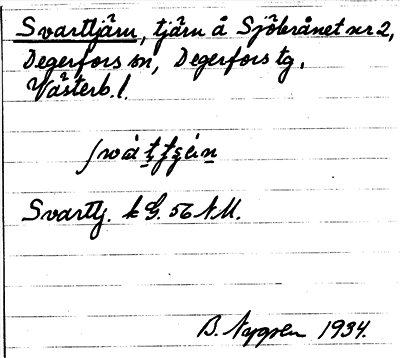 Svarttjärn, tjärn å Sjöbrånet nr 2,
Degerfors sn, Degerfors tg,
Västerb. l.
Svarttj. k G. 56 NM.
B. Nygren 1934.